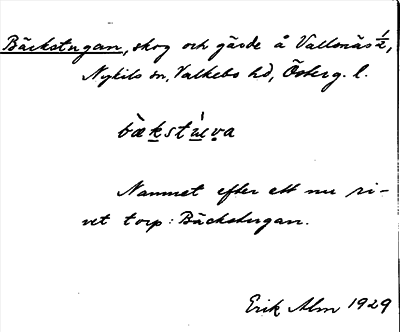 Bäckstugan, skog och gärde å Vallsnäs ½,
Nykils sn, Valkebo hd, Österg. l.
Namnet efter ett nu ri-
vet torp: Bäckstugan.
Erik Alm 1929